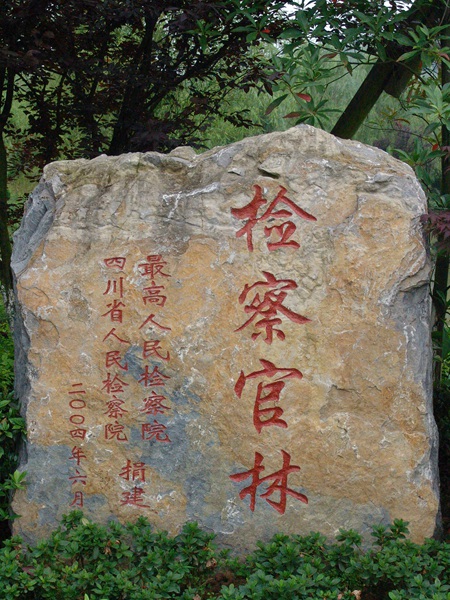 检察官林
最高人民检察院
四川省人民检察院
捐建
二〇〇四年六月